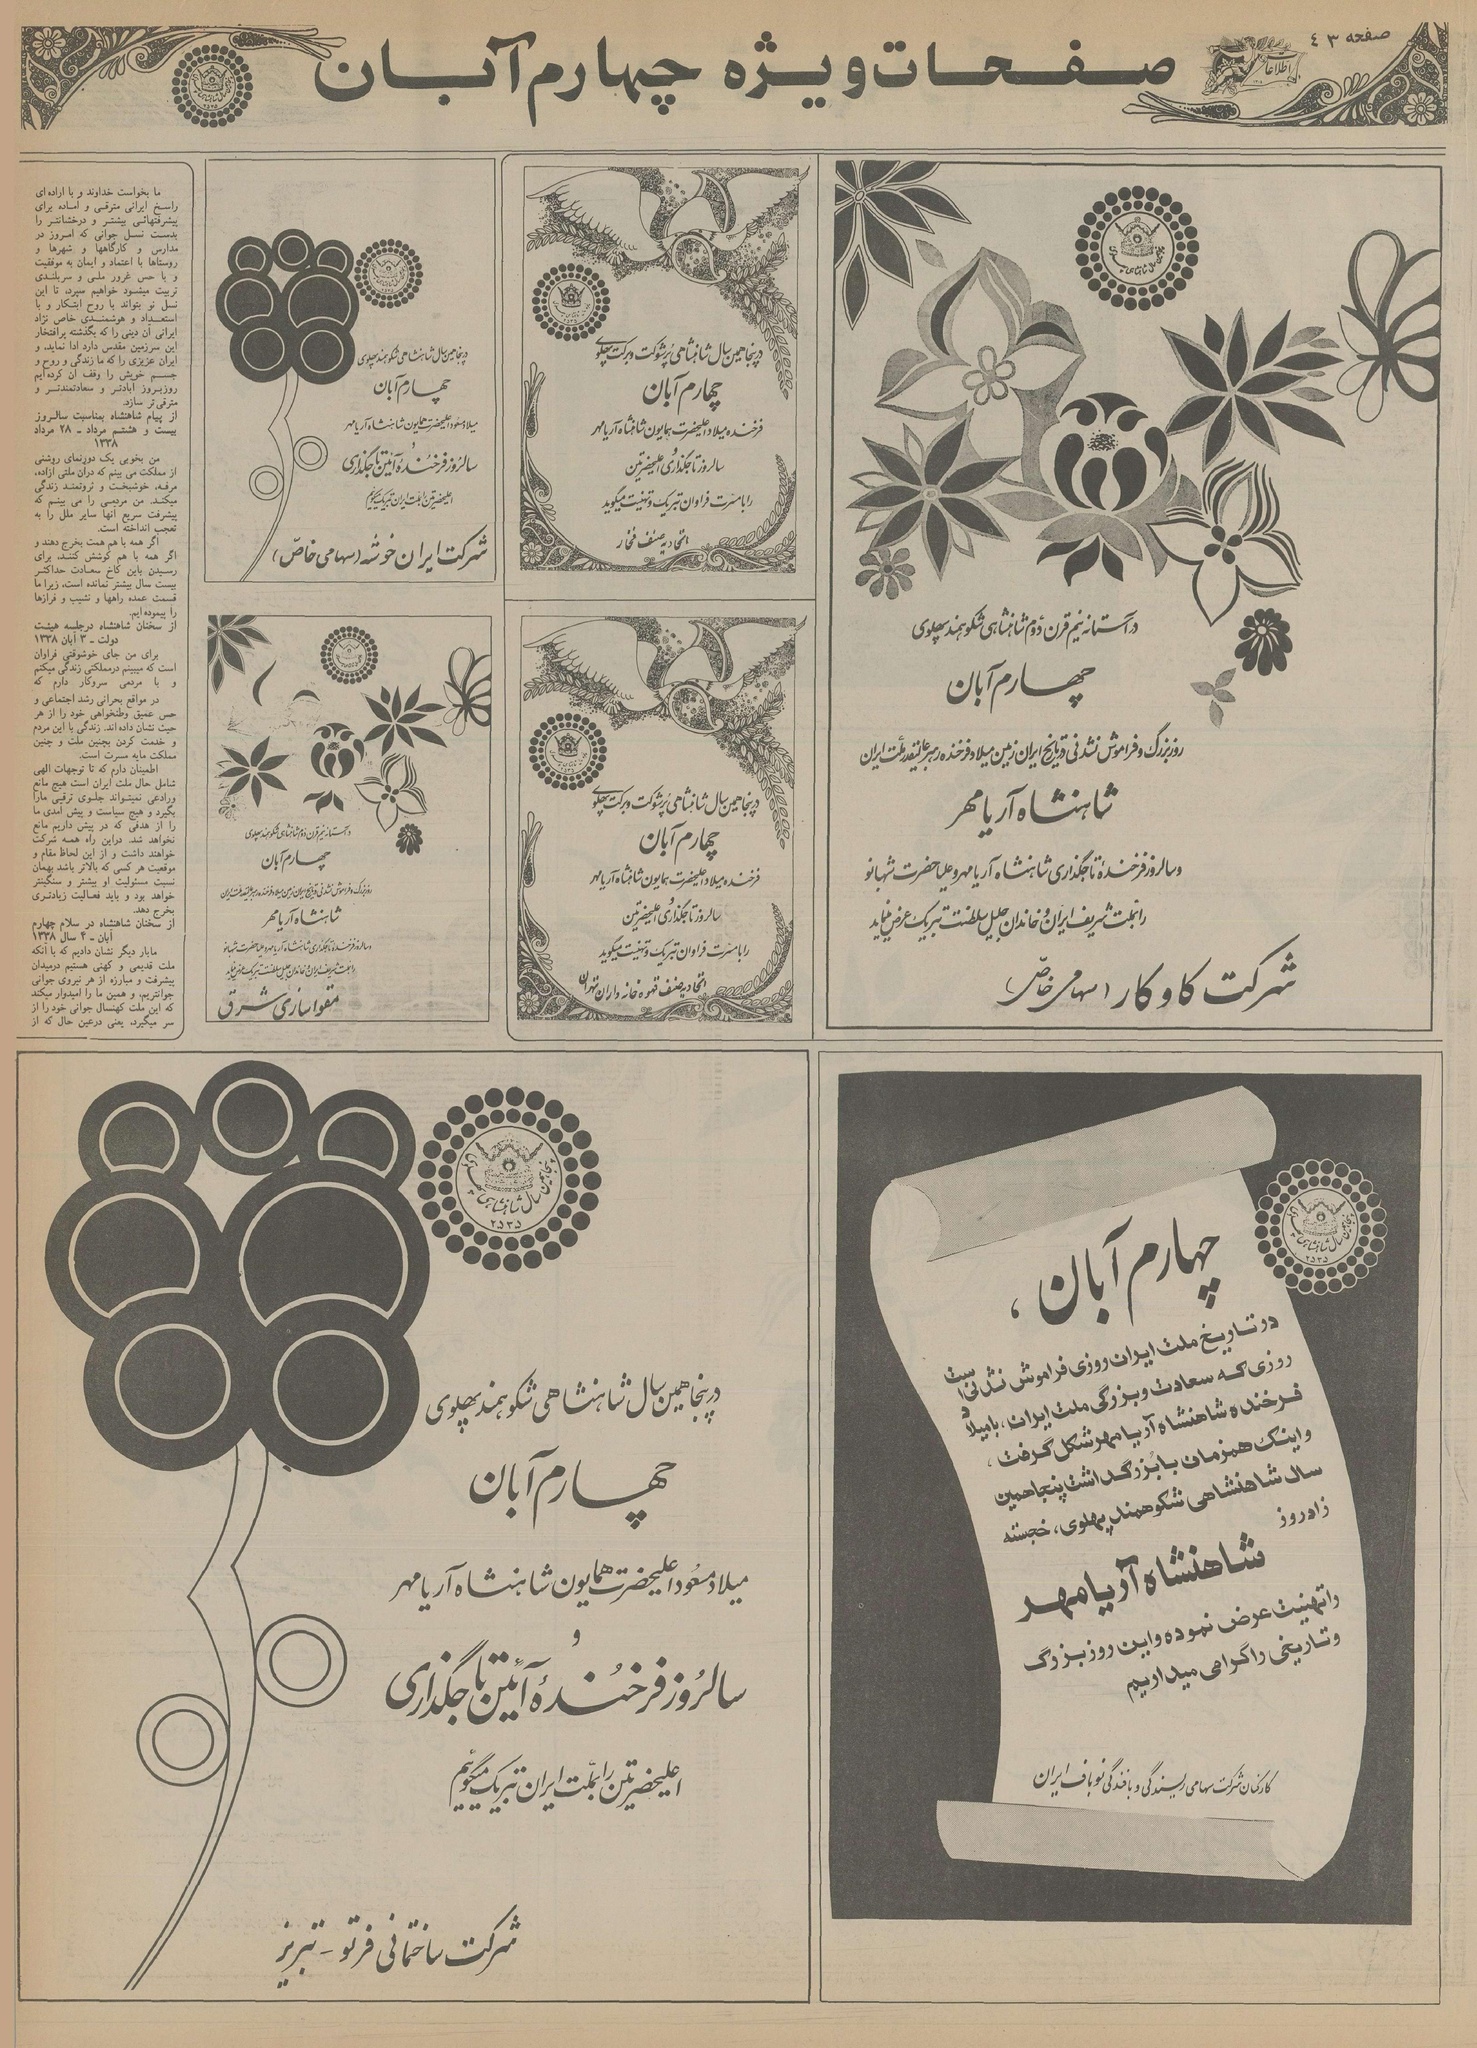 صفحه ۳ ٤
اطلاعات
صفحات ویژه چهارم آبان
در آستانه نیم قرن دوم شاهنشاهی شکوهمند پهلوی
چهارم آبان
روز بزرگ و فراموش نشدنی در تاریخ ایران زمین میلاد فرخنده رهبر عالیقدر ملت ایران
شاهنشاه آریامهر
و سالروز فرخندهٔ تاجگذاری شاهنشاه آریامهر و علیاحضرت شهبانو
را بملت شریف ایران و خاندان جلیل سلطنت تبریک عرض مینماید
شرکت کاوکار (سهامی خاص)
در پنجاهمین سال شاهنشاهی پرشوکت و برکت پهلوی
چهارم آبان
فرخنده میلاد اعلیحضرت همایون شاهنشاه آریامهر
و
سالروز تاجگذاری اعلیحضرتین
را با مسرت فراوان تبریک و تهنیت میگوید
اتحادیه صنف فخار
در پنجاهمین سال شاهنشاهی پرشوکت و برکت پهلوی
چهارم آبان
فرخنده میلاد اعلیحضرت همایون شاهنشاه آریامهر
و
سالروز تاجگذاری اعلیحضرتین
را با مسرت فراوان تبریک و تهنیت میگوید
اتحادیه صنف قهوه خانه داران تهران
در پنجاهمین سال شاهنشاهی شکوهمند پهلوی
چهارم آبان
میلاد مسعود اعلیحضرت همایون شاهنشاه آریامهر
و
سالروز فرخندهٔ آئین تاجگذاری
اعلیحضرتین را بملت ایران تبریک میگوئیم
شرکت ایران خوشه (سهامی خاص)
در آستانه نیم قرن دوم شاهنشاهی شکوهمند پهلوی
چهارم آبان
روز بزرگ و فراموش نشدنی در تاریخ ایران زمین میلاد فرخنده رهبر عالیقدر ملت ایران
شاهنشاه آریامهر
و سالروز فرخندهٔ تاجگذاری شاهنشاه آریامهر و علیاحضرت شهبانو
را بملت شریف ایران و خاندان جلیل سلطنت تبریک عرض مینماید
مقواسازی شرق
ما بخواست خداوند و با اراده‌ای
راسخ ایرانی مترقی و آماده برای
پیشرفتهائی بیشتر و درخشانتر را
بدست نسل جوانی که امروز در
مدارس و کارگاهها و شهرها و
روستاها با اعتماد و ایمان به موفقیت
و با حس غرور ملی و سربلندی
تربیت میشود خواهیم سپرد، تا این
نسل نو بتواند با روح ابتکار و با
استعداد و هوشمندی خاص نژاد
ایرانی آن دینی را که بگذشته پرافتخار
این سرزمین مقدس دارد ادا نماید، و
ایران عزیزی را که ما زندگی و روح و
جسم خویش را وقف آن کرده‌ایم
روزبروز آبادتر و سعادتمندتر و
مترقی‌تر سازد.
از پیام شاهنشاه بمناسبت سالروز
بیست و هشتم مرداد ـ ۲۸ مرداد
۱۳۳۸
من بخوبی یک دورنمای روشنی
از مملکت می بینم که در آن ملتی آزاده،
مرفه، خوشبخت و ثروتمند زندگی
میکند. من مردمی را می بینم که
پیشرفت سریع آنها سایر ملل را به
تعجب انداخته است.
اگر همه با هم همت بخرج دهند و
اگر همه با هم کوشش کنند، برای
رسیدن باین کاخ سعادت حداکثر
بیست سال بیشتر نمانده است، زیرا ما
قسمت عمده راهها و نشیب و فرازها
را پیموده ایم.
از سخنان شاهنشاه در جلسه هیئت
دولت ـ ۳ آبان ۱۳۳۸
برای من جای خوشوقتی فراوان
است که میبینم در مملکتی زندگی میکنم
و با مردمی سروکار دارم که
در مواقع بحرانی رشد اجتماعی و
حس عمیق وطنخواهی خود را از هر
حیث نشان داده اند. زندگی با این مردم
و خدمت کردن بچنین ملت و چنین
مملکت مایه مسرت است.
اطمینان دارم که تا توجهات الهی
شامل حال ملت ایران است هیچ مانع
ورادعی نمیتواند جلوی ترقی ما را
بگیرد و هیچ سیاست و پیش آمدی ما
را از هدفی که در پیش داریم مانع
نخواهد شد. در این راه همه شرکت
خواهند داشت و از این لحاظ مقام و
موقعیت هر کسی که بالاتر باشد بهمان
نسبت مسئولیت او بیشتر و سنگینتر
خواهد بود و باید فعالیت زیادتری
بخرج دهد.
از سخنان شاهنشاه در سلام چهارم
آبان ـ ۴ سال ۱۳۳۸
ما بار دیگر نشان دادیم که با آنکه
ملت قدیمی و کهنی هستیم در میدان
پیشرفت و مبارزه از هر نیروی جوانی
جوانتریم، و همین ما را امیدوار میکند
که این ملت کهنسال جوانی خود را از
سر میگیرد، یعنی در عین حال که از
پنجاهمین سال شاهنشاهی پهلوی
۲۵۳۵
چهارم آبان،
در تاریخ ملت ایران روزی فراموش نشدنی است
روزی که سعادت و بزرگی ملت ایران، با میلاد
فرخنده شاهنشاه آریامهر شکل گرفت،
و اینک همزمان با بزرگداشت پنجاهمین
سال شاهنشاهی شکوهمند پهلوی، خجسته
زادروز
شاهنشاه آریامهر
را تهنیت عرض نموده و این روز بزرگ
و تاریخی را گرامی میداریم
کارکنان شرکت سهامی ریسندگی و بافندگی نوباف ایران
پنجاهمین سال شاهنشاهی پهلوی
۲۵۳۵
در پنجاهمین سال شاهنشاهی شکوهمند پهلوی
چهارم آبان
میلاد مسعود اعلیحضرت همایون شاهنشاه آریامهر
و
سالروز فرخندهٔ آئین تاجگذاری
اعلیحضرتین را بملت ایران تبریک میگوئیم
شرکت ساختمانی فرتو - تبریز